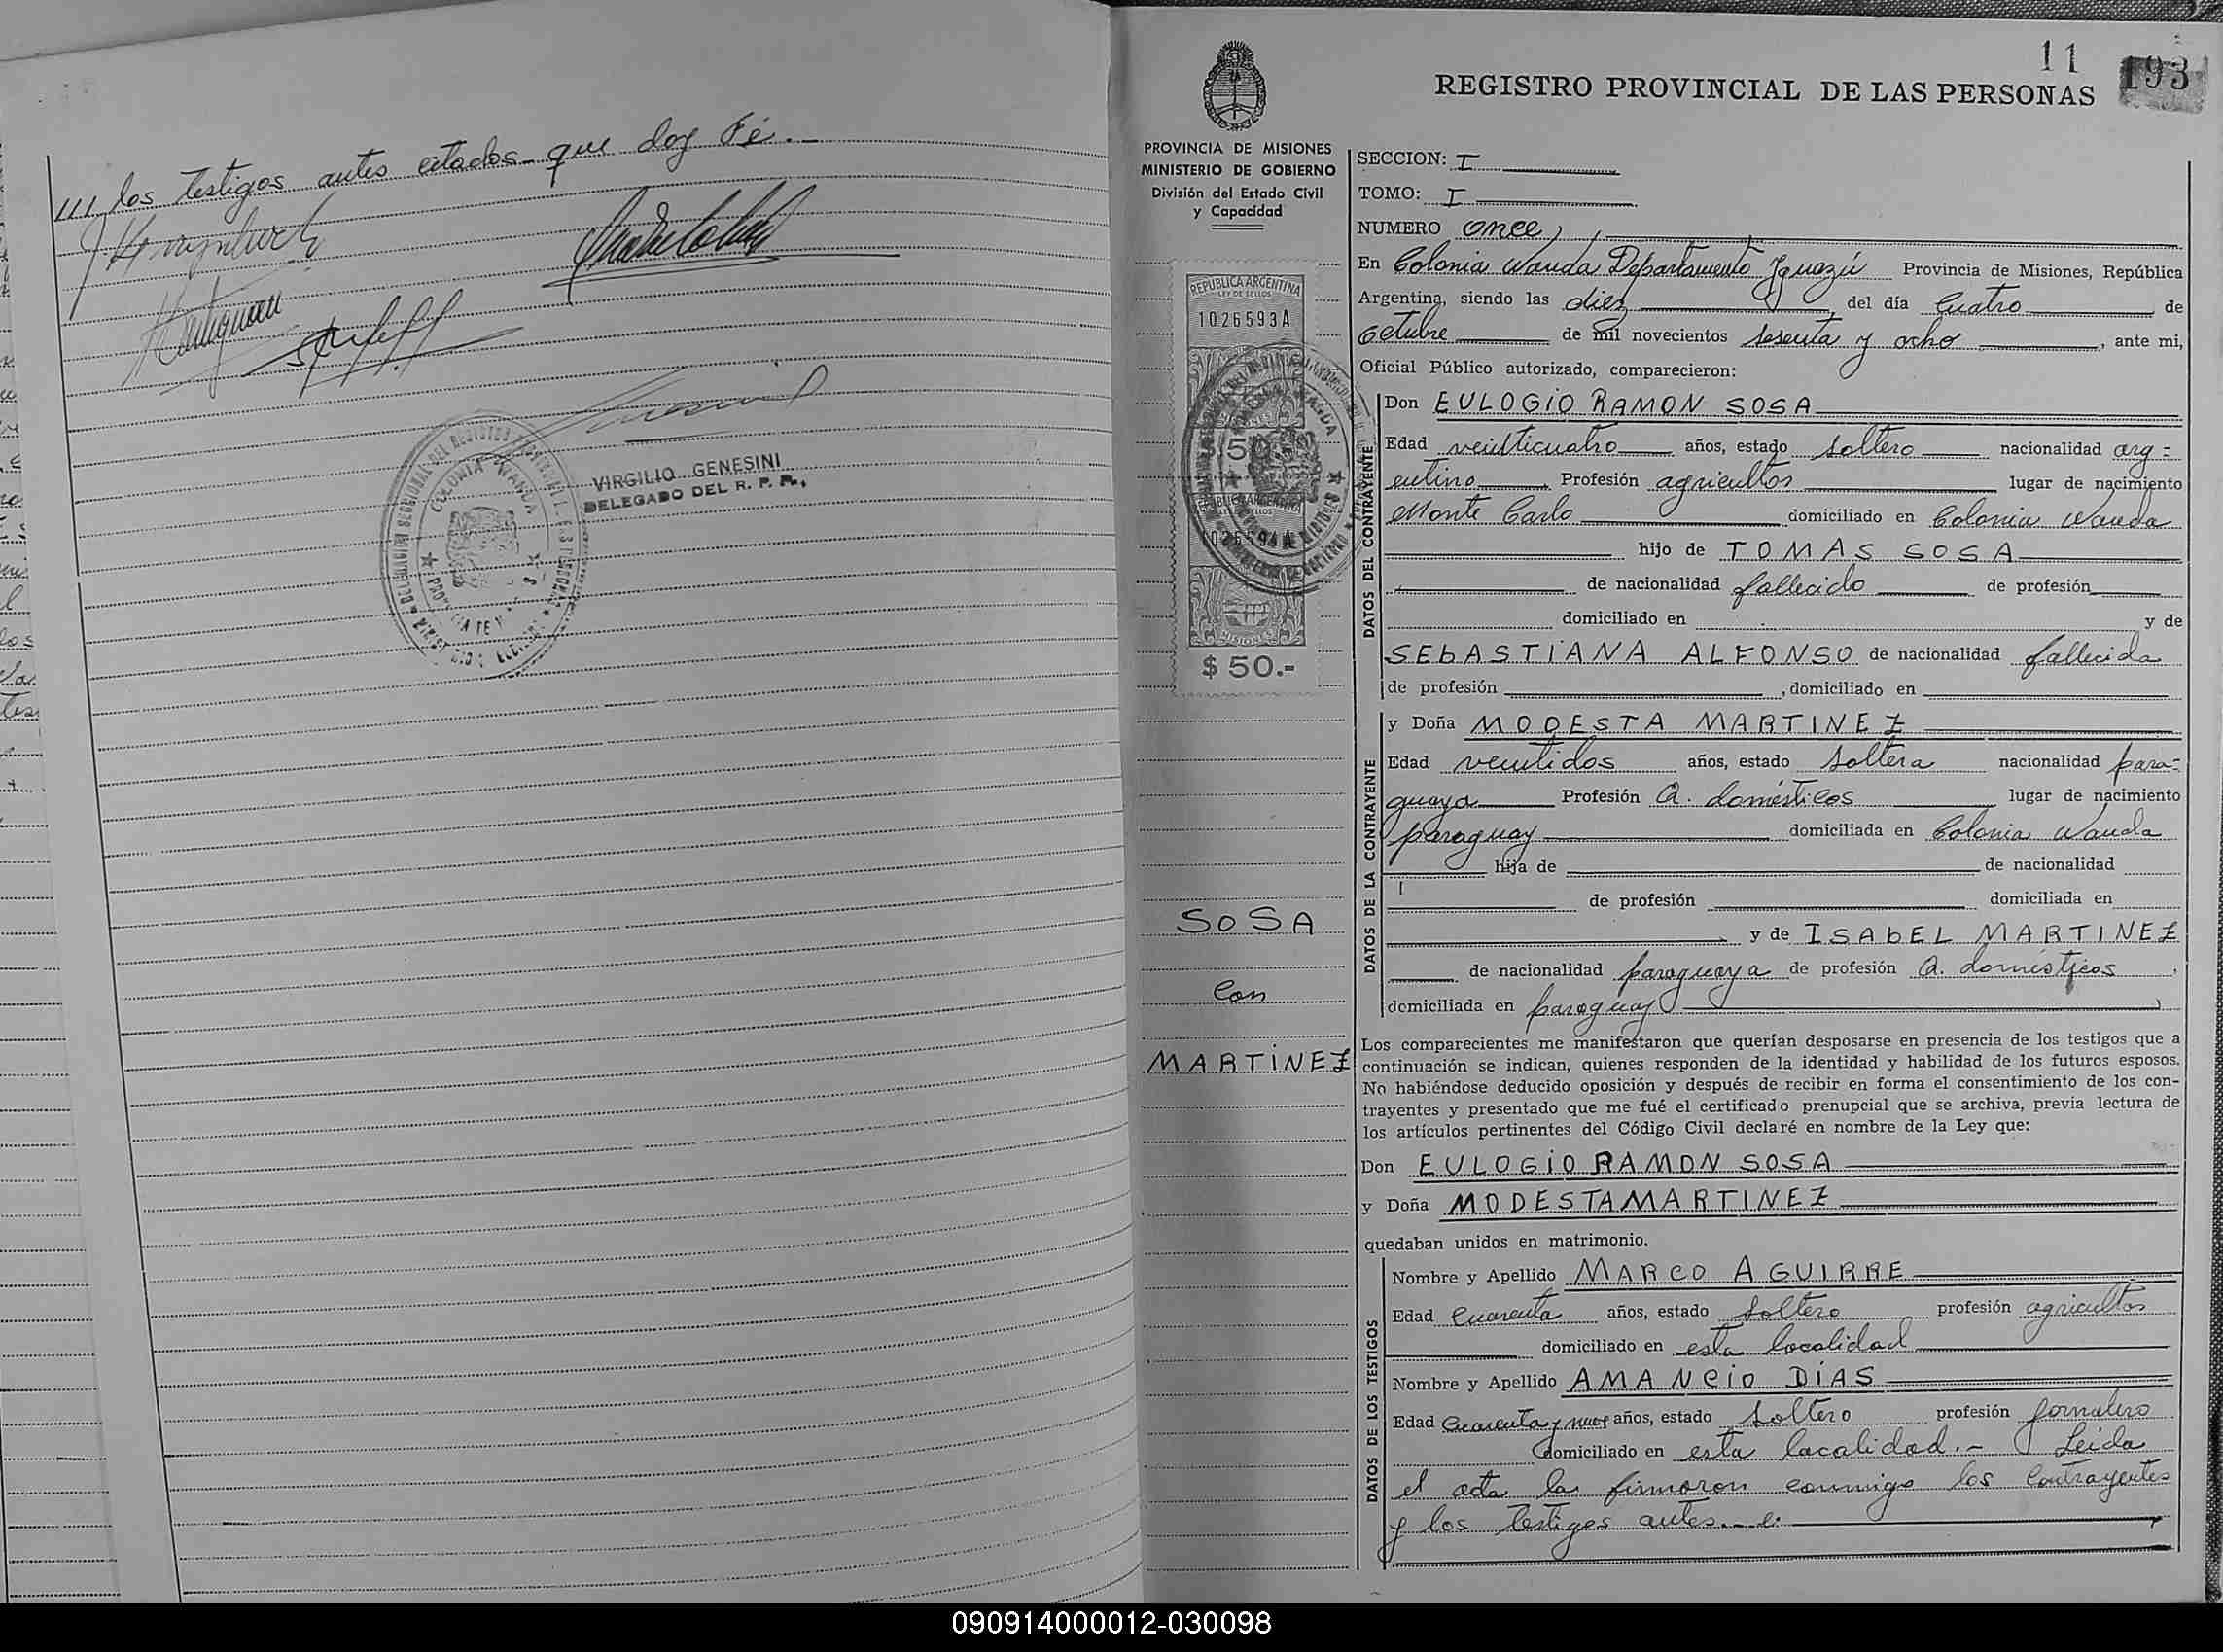 /// los testigos antes citados que doy Fé.-
VIRGILIO GENESINI
DELEGADO DEL R. P. P.
COLONIA WANDA
11
193
REGISTRO PROVINCIAL DE LAS PERSONAS
PROVINCIA DE MISIONES
MINISTERIO DE GOBIERNO
División del Estado Civil
y Capacidad
REPUBLICA ARGENTINA
LEY DE SELLOS
1026593A
MISIONES
$ 50.-
SOSA
con
MARTINEZ
SECCION: I
TOMO: I
NUMERO once,
En Colonia Wanda Departamento Iguazú Provincia de Misiones, República
Argentina, siendo las diez, del día cuatro de
octubre de mil novecientos sesenta y ocho, ante mi,
Oficial Público autorizado, comparecieron:
DATOS DEL CONTRAYENTE
Don EULOGIO RAMON SOSA
Edad veinticuatro años, estado soltero nacionalidad arg=
entino Profesión agricultor lugar de nacimiento
Monte Carlo domiciliado en Colonia Wanda
hijo de TOMAS SOSA
de nacionalidad fallecido de profesión
domiciliado en y de
SEBASTIANA ALFONSO de nacionalidad fallecida
de profesión , domiciliado en
DATOS DE LA CONTRAYENTE
y Doña MODESTA MARTINEZ
Edad veintidos años, estado soltera nacionalidad para=
guaya Profesión Q. domésticos lugar de nacimiento
paraguay domiciliada en Colonia Wanda
hija de de nacionalidad
de profesión domiciliada en
y de ISABEL MARTINEZ
de nacionalidad paraguaya de profesión Q. domésticos
domiciliada en paraguay
Los comparecientes me manifestaron que querían desposarse en presencia de los testigos que a
continuación se indican, quienes responden de la identidad y habilidad de los futuros esposos.
No habiéndose deducido oposición y después de recibir en forma el consentimiento de los con-
trayentes y presentado que me fué el certificado prenupcial que se archiva, previa lectura de
los artículos pertinentes del Código Civil declaré en nombre de la Ley que:
Don EULOGIO RAMON SOSA
y Doña MODESTA MARTINEZ
quedaban unidos en matrimonio.
DATOS DE LOS TESTIGOS
Nombre y Apellido MARCO AGUIRRE
Edad cuarenta años, estado soltero profesión agricultor
domiciliado en esta localidad
Nombre y Apellido AMANCIO DIAS
Edad cuarenta y nueve años, estado soltero profesión jornalero
domiciliado en esta localidad.- Leida
el acta la firmaron conmigo los contrayentes
y los testigos antes.-
090914000012-030098